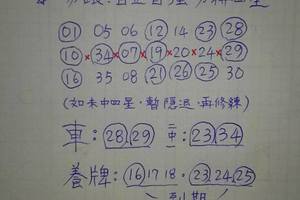 01 05 06 12 14 23 28
10×34×07×19×20×24×29
16 35 08 21 26 25 30
(如未中四星，暫隱退，再修練)
車：28,29 二中：23,34
養牌：16 17 18．23,24,25
到期